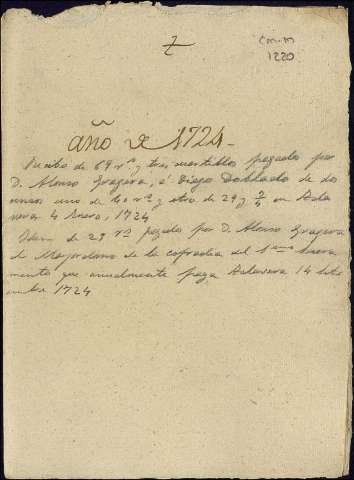 7
CM-M
1220
año de 1724-
Recibo de 69 rs y tres cuartillos pagados por
D. Alonso Gragera, á Diego Doblado de dos
censos uno de 40 rs y otro de 29 y 3/4 en
4 Enero, 1724
Idem de 29 rs pagados por D. Alonso Gragera
al Mayordomo de la cofradia del Smo Sacra
mento que anualmente paga Talavera 14 Seti
embre 1724